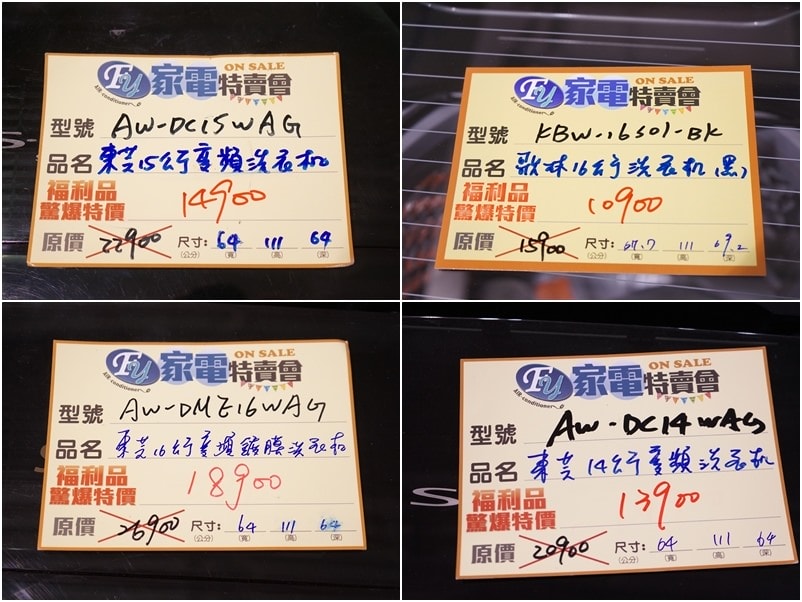 FY 家電特賣會 ON SALE
AIR-conditioner
型號 AW-DC15WAG
品名 東芝15公斤變頻洗衣机
福利品
驚爆特價 14900
原價 22900 尺寸: 64 111 64
(公分) (寬) (高) (深)
FY 家電特賣會 ON SALE
AIR-conditioner
型號 KBW-16S01-BK
品名 歌林16公斤洗衣机(黑)
福利品
驚爆特價 10900
原價 15900 尺寸: 67.7 111 67.2
(公分) (寬) (高) (深)
FY 家電特賣會 ON SALE
AIR-conditioner
型號 AW-DME16WAG
品名 東芝16公斤變頻鍍膜洗衣机
福利品
驚爆特價 18900
原價 26900 尺寸: 64 111 64
(公分) (寬) (高) (深)
FY 家電特賣會 ON SALE
AIR-conditioner
型號 AW-DC14WAG
品名 東芝14公斤變頻洗衣机
福利品
驚爆特價 13900
原價 20900 尺寸: 64 111 64
(公分) (寬) (高) (深)